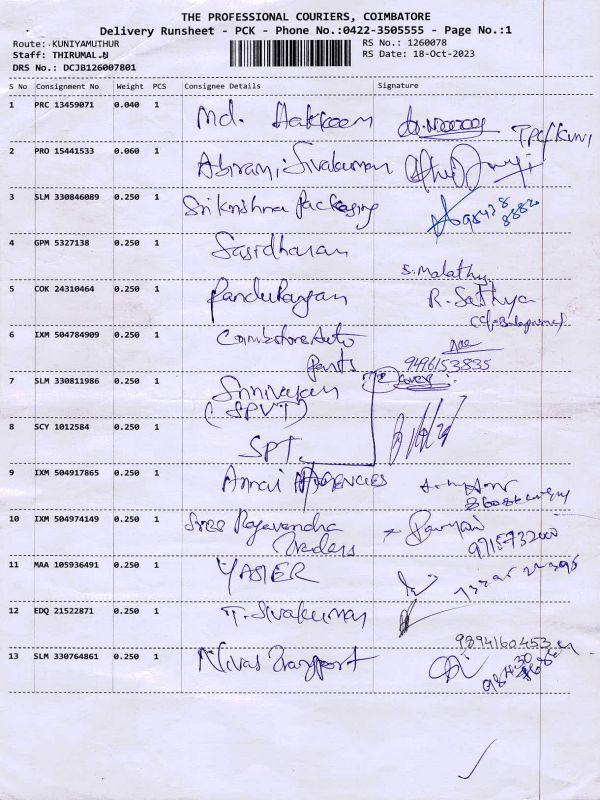 THE PROFESSIONAL COURIERS, COIMBATORE
Delivery Runsheet - PCK - Phone No.:0422-3505555 - Page No.:1
Route: KUNIYAMUTHUR RS No.: 1260078
Staff: THIRUMAL.N RS Date: 18-Oct-2023
DRS No.: DCJB126007801
S No Consignment No Weight PCS Consignee Details Signature
1 PRC 13459071 0.040 1 Md. Hakkeem
2 PRO 15441533 0.060 1 Abirami Sivakumar
3 SLM 330846089 0.250 1 Sri Krishna Packaging
4 GPM 5327138 0.250 1 Sasidharan
S. Malathy
5 COK 24310464 0.250 1 Pandurangan R. Sathya
6 IXM 504784909 0.250 1 Coimbatore Auto
Parts 9496153835
7 SLM 330811986 0.250 1 Srinivasan
(SPVT)
8 SCY 1012584 0.250 1 SPT.
9 IXM 504917865 0.250 1 Annai AGENCIES
10 IXM 504974149 0.250 1 Sree Ragavendra
Traders 9715732000
11 MAA 105936491 0.250 1 YASER
12 EDQ 21522871 0.250 1 T. Sivakumar
9894160453
13 SLM 330764861 0.250 1 Nivas Transport